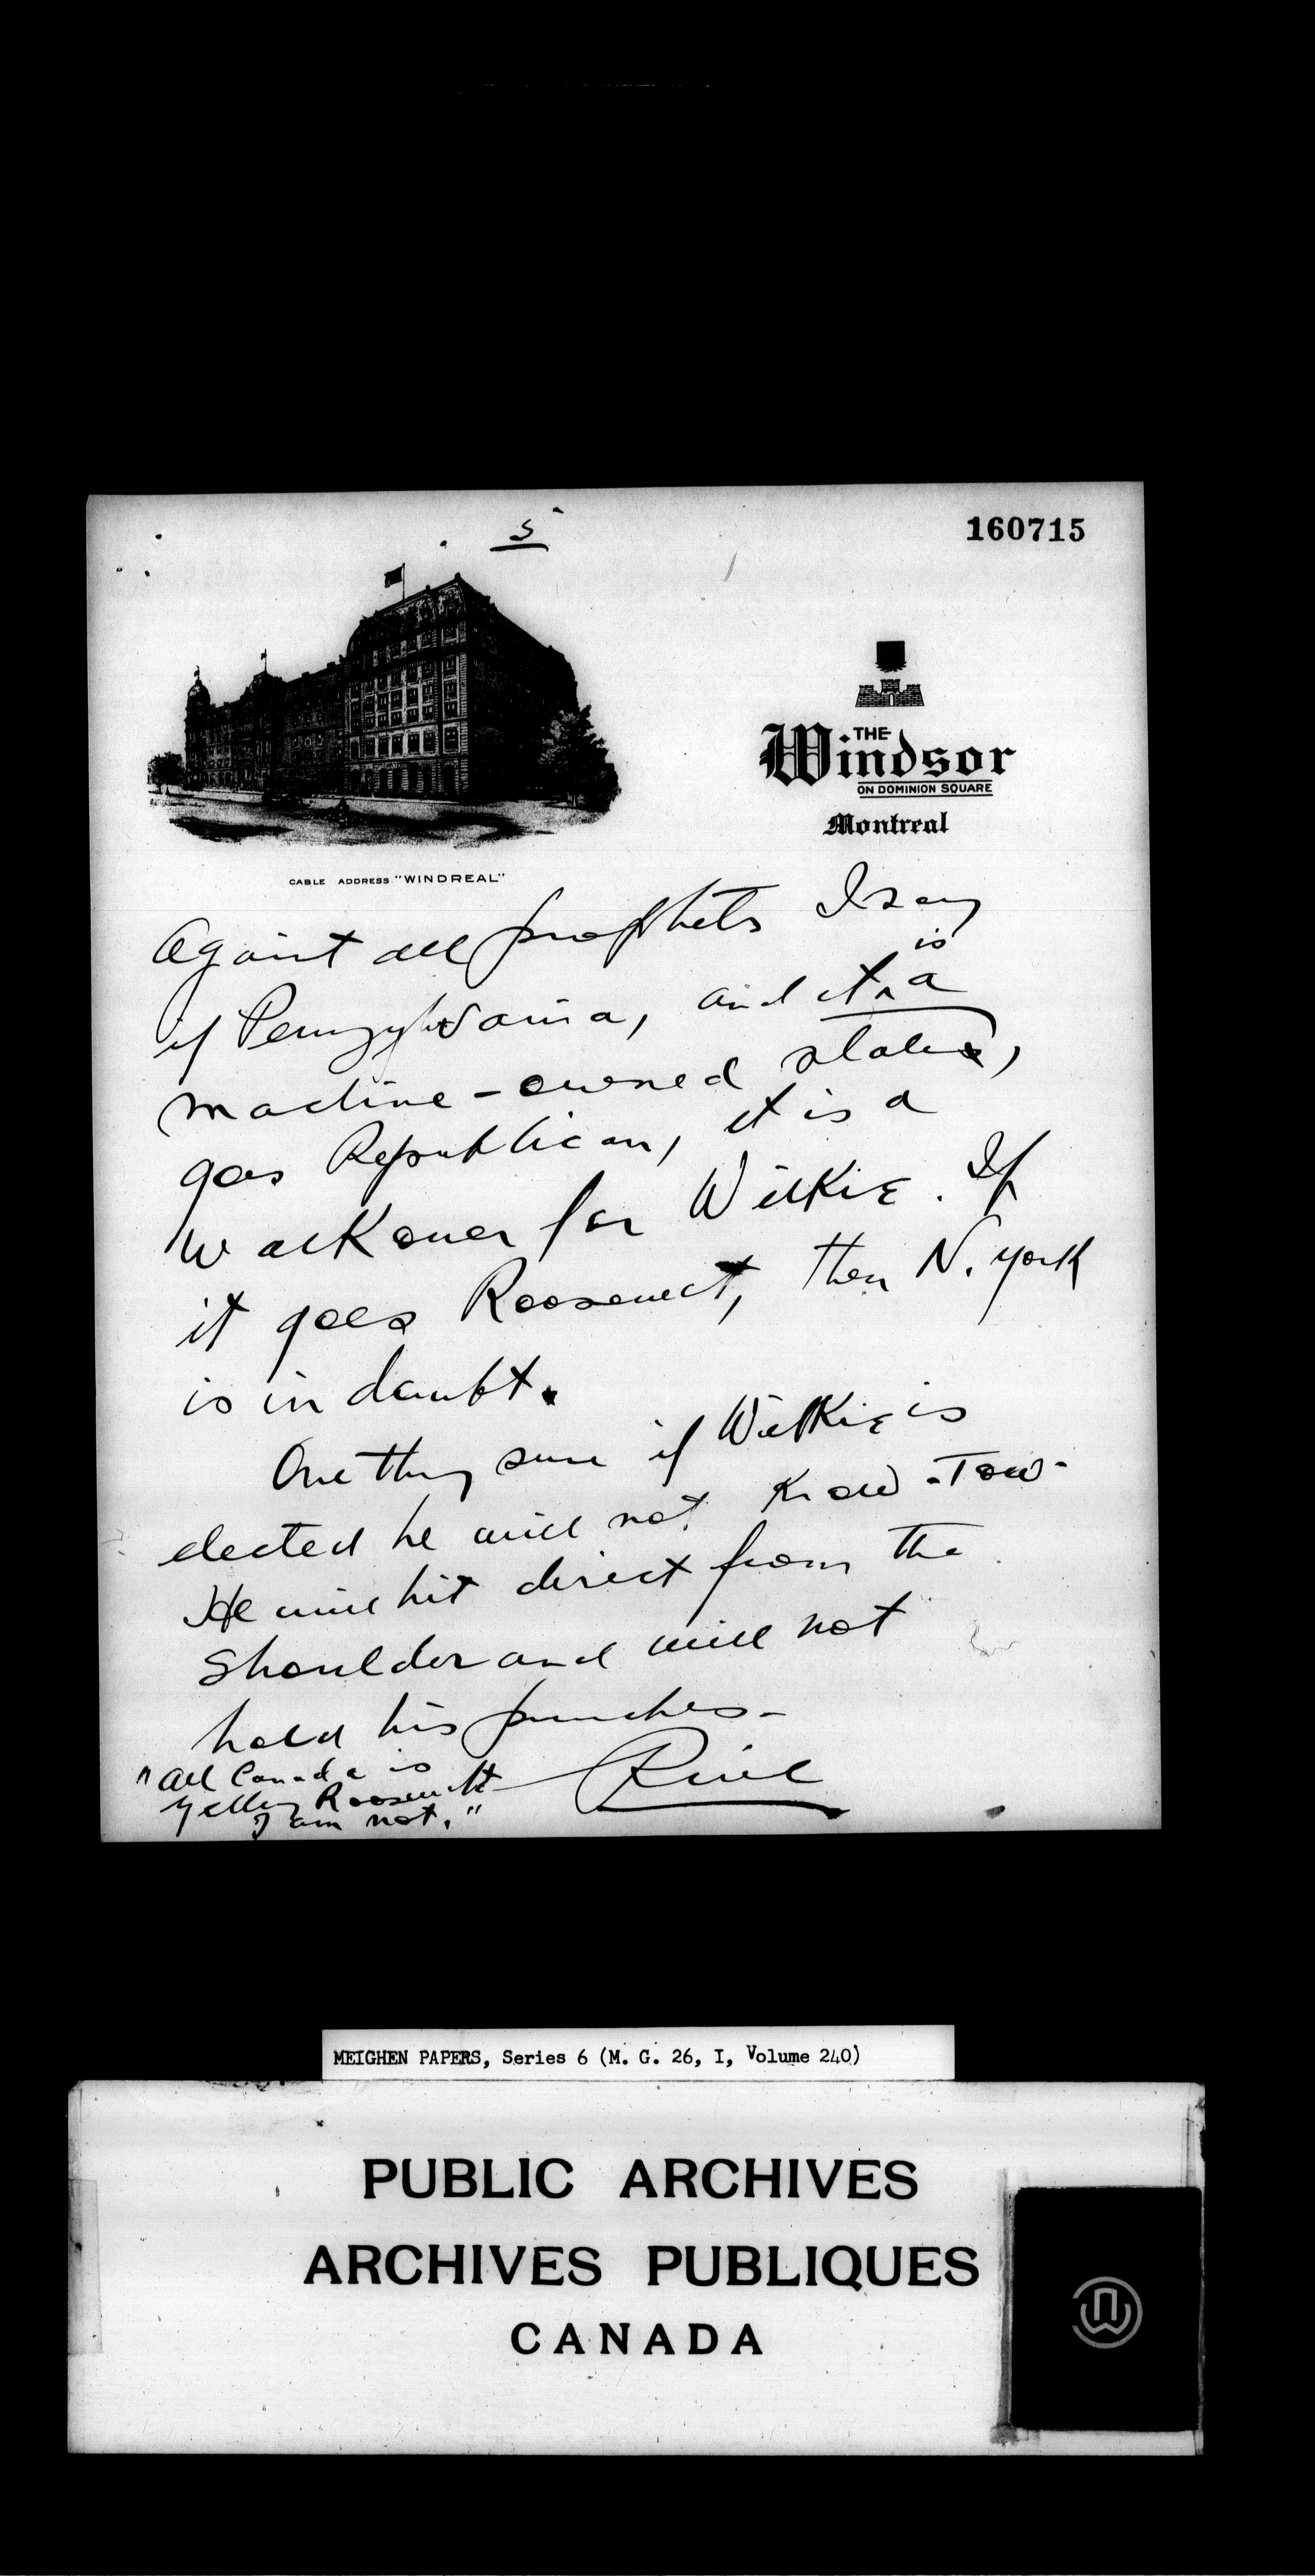 5
160715
THE
Windsor
ON DOMINION SQUARE
Montreal
CABLE ADDRESS "WINDREAL"
Against all prophets I say
if Pennzylvania, and it is a
machine-owned state,
goes Republican, it is a
walkover for Wilkie. If
it goes Roosevelt, then N. York
is in doubt.
One thing sure if Wilkie is
elected he will not Kow-Tow-
He will hit direct from the
shoulder and will not
hold his punches-
"All Canada is
yelling Roosevelt
I am not."
MEIGHEN PAPERS, Series 6 (M. G. 26, I, Volume 240)
PUBLIC ARCHIVES
ARCHIVES PUBLIQUES
CANADA